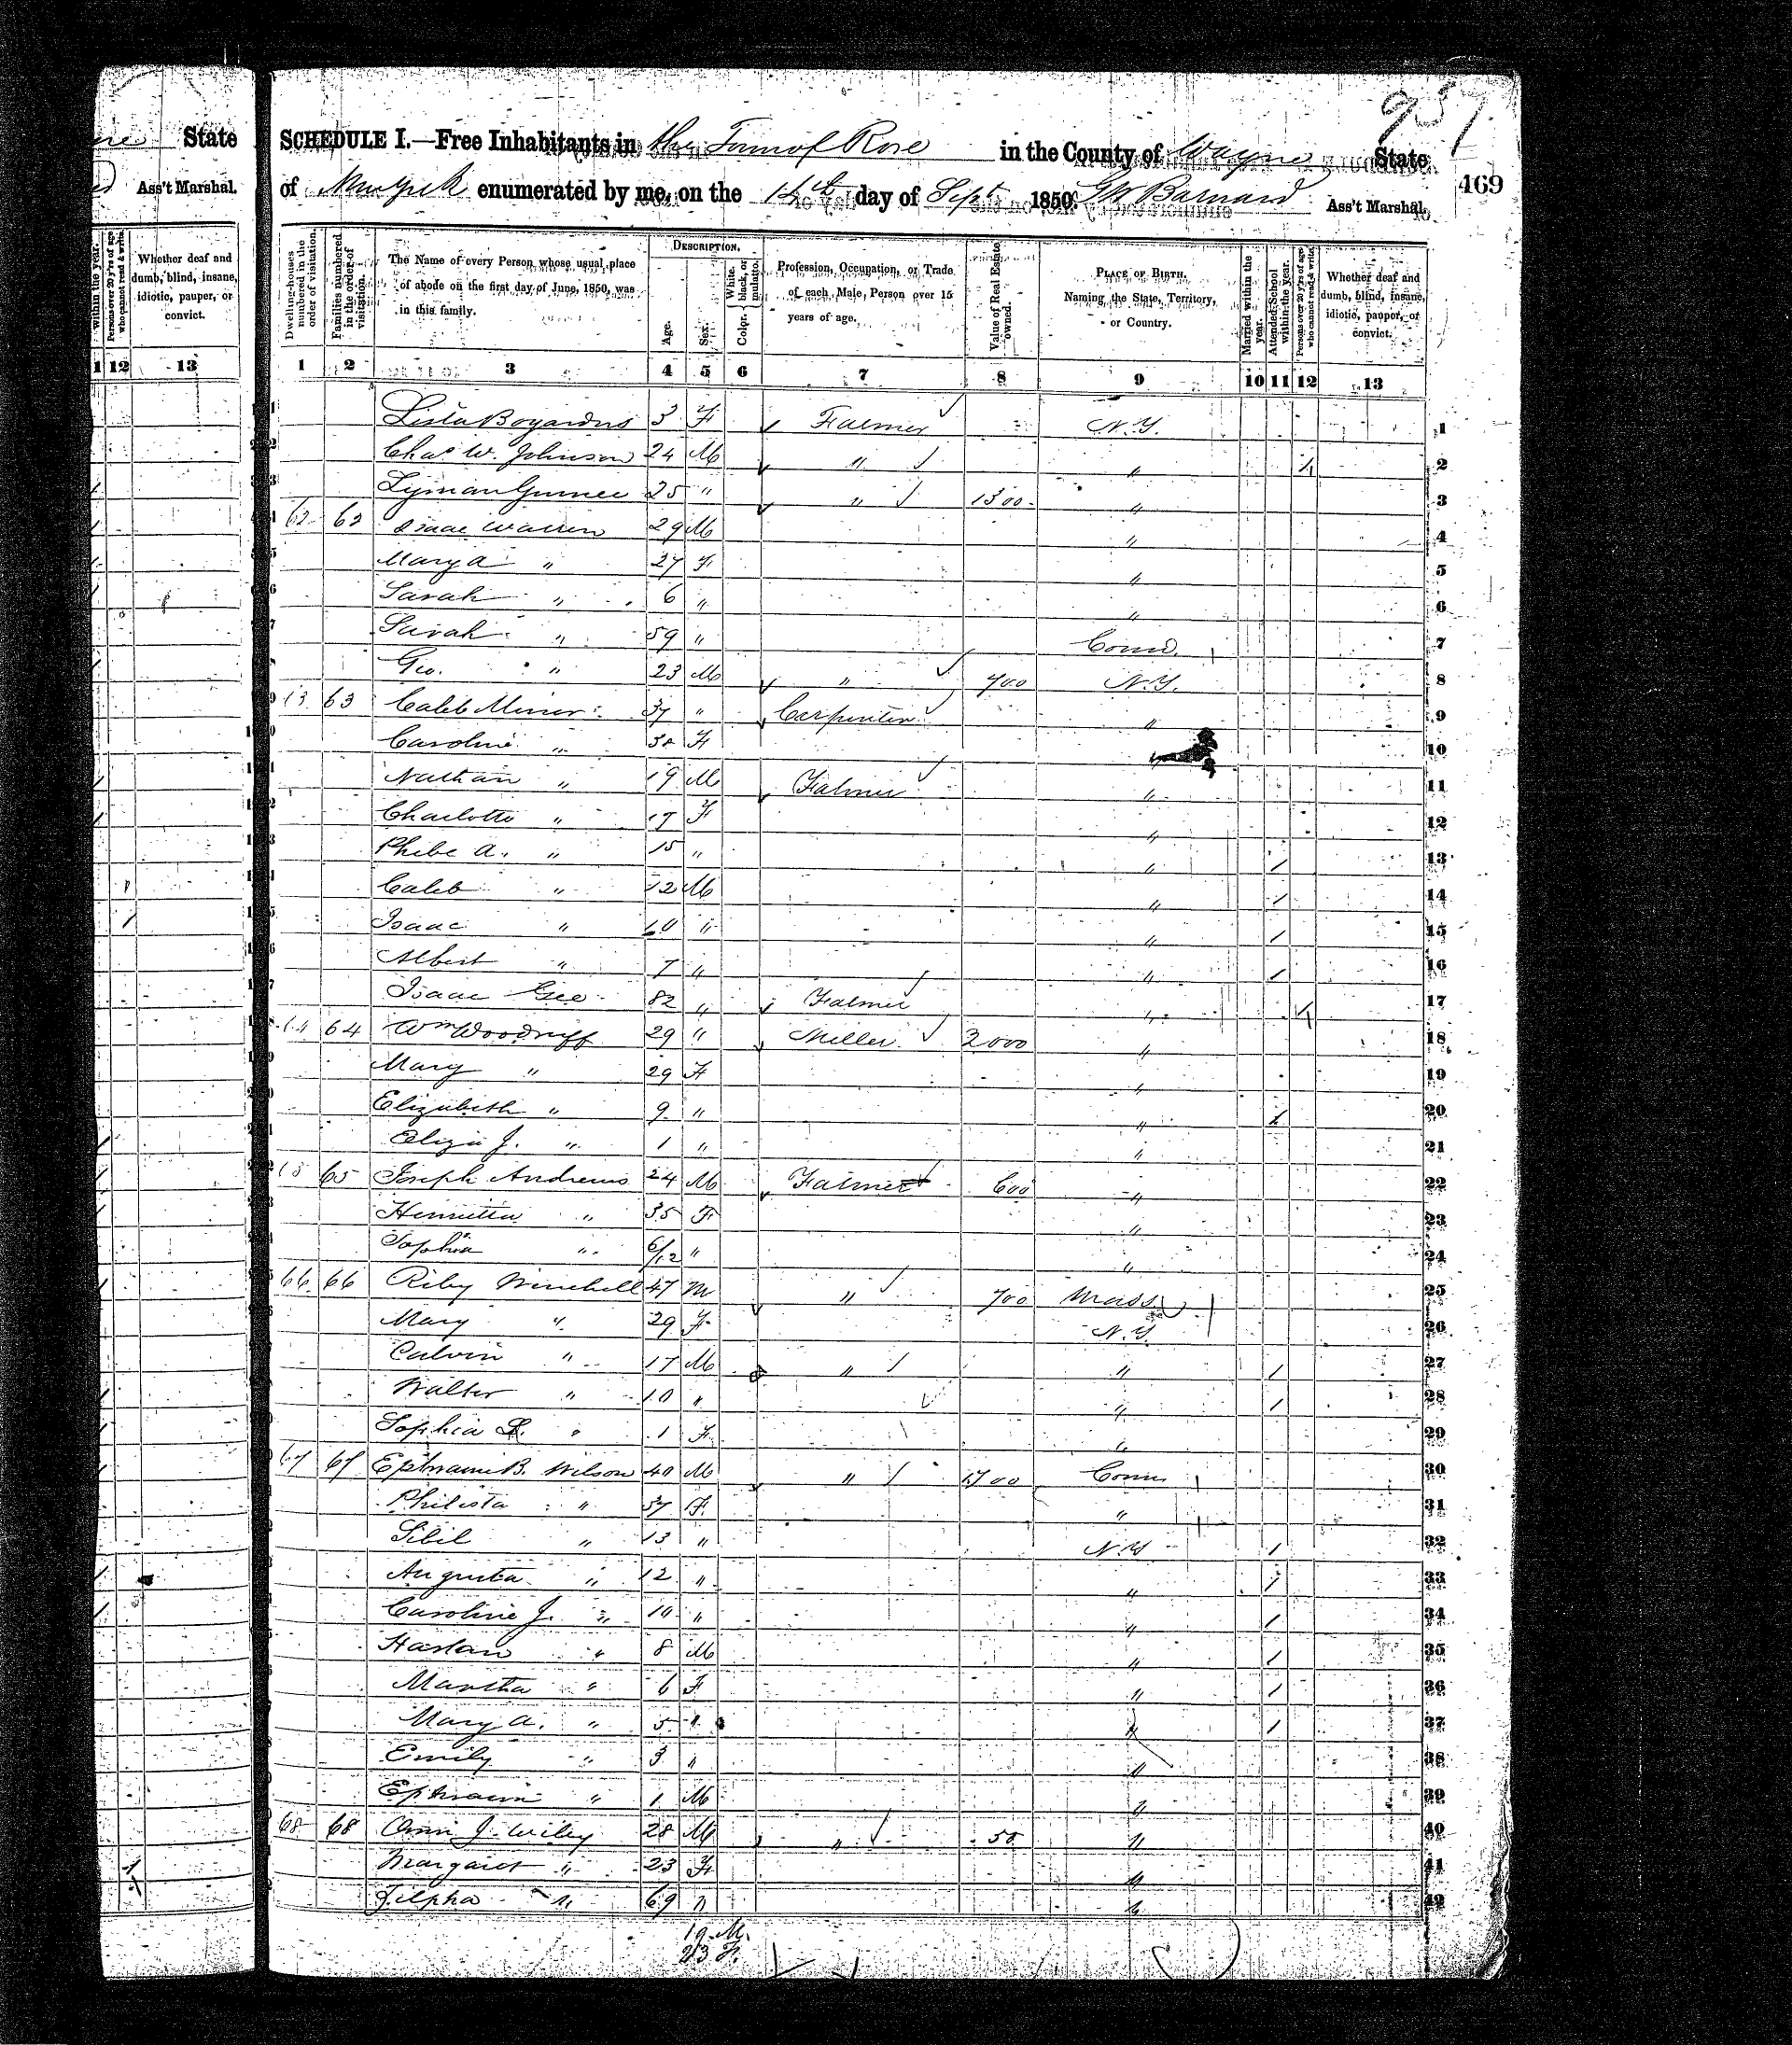 937
State
Ass't Marshal.
SCHEDULE I.—Free Inhabitants in the Town of Rose in the County of Wayne State
of New York enumerated by me, on the 14th day of Sept 1850. Barnard Ass't Marshal.
469
within the year.
Persons over 20 y'rs of age who cannot read & write.
Whether deaf and dumb, blind, insane, idiotic, pauper, or convict.
Dwelling-houses numbered in the order of visitation.
Families numbered in the order of visitation.
The Name of every Person whose usual place of abode on the first day of June, 1850, was in this family.
DESCRIPTION.
Age.
Sex.
Color. White, black, or mulatto.
Profession, Occupation, or Trade of each Male Person over 15 years of age.
Value of Real Estate owned.
PLACE OF BIRTH. Naming the State, Territory, or Country.
Married within the year.
Attended School within the year.
Persons over 20 y'rs of age who cannot read & write.
Whether deaf and dumb, blind, insane, idiotic, pauper, or convict.
1 12 13
1 2 3 4 5 6 7 8 9 10 11 12 13
Bogardus 3 F Farmer N.Y. 1
Chas W. Johnson 24 M " " / 2
Lyman 25 " " 1300 " 3
62 62 Isaac Warren 29 M " 4
Mary A " 27 F " 5
Sarah " 6 " " 6
Sarah " 59 " Conn. 7
Geo. " 23 M " 700 N.Y. 8
63 Caleb Miner 37 " Carpenter " 9
Caroline " F " 10
Nathan " 19 M Farmer " 11
Charlotte " 17 F " 12
Phebe A. " 15 " " / 13
Caleb " 12 M " / 14
Isaac " 10 " " / 15
Albert " 7 " " / 16
Isaac Gee 82 " Farmer " / 17
64 Wm Woodruff 29 " Miller 2000 " 18
Mary " 29 F " 19
Elizabeth " 9 " " / 20
Eliza J. " 1 " " 21
65 Joseph Andrews 24 M Farmer 600 " 22
Henrietta " 35 F " 23
Sophia " 6/12 " " 24
66 66 Riley Winchell 47 M " 700 Mass 25
Mary " 29 F N.Y. 26
Calvin " 17 M " " / 27
Walter " 10 " " / 28
Sophia " 1 F " 29
67 67 Ephraim B. Wilson 40 M " 1700 Conn 30
Philista " 37 F " 31
Sibil " 13 " N.Y / 32
Augusta " 12 " " / 33
Caroline J. " 10 " " / 34
Harlan " 8 M " / 35
Martha " 6 F " / 36
Mary A. " 5 " " / 37
Emily " 3 " " 38
Ephraim " 1 M " 39
68 68 J. Wiley 28 M " 50 " 40
Margaret " 23 F " 41
Zilpha " 69 " " 42
19 M.
23 F.